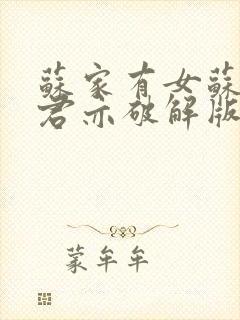 蘇家有女蘇
君亦破解版
蒙牟牟